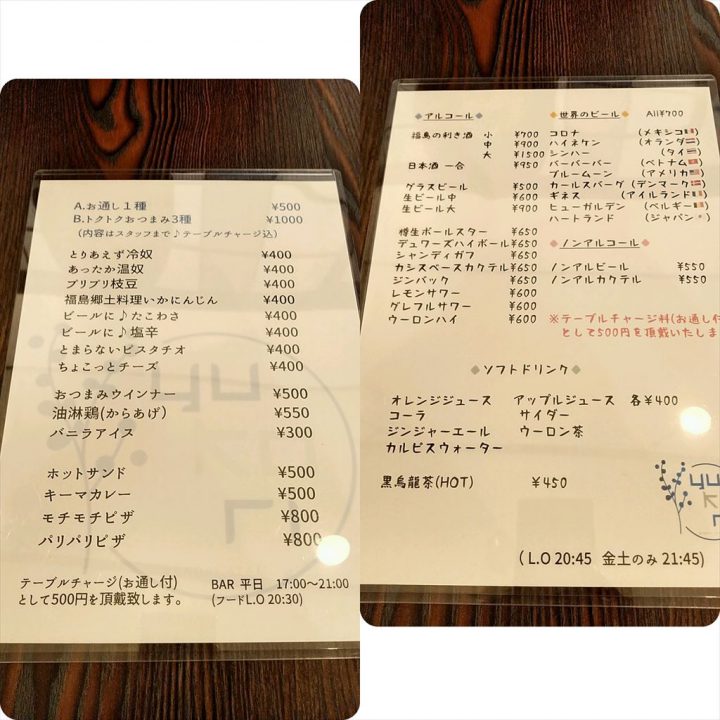 A.お通し1種 ¥500
B.トクトクおつまみ3種 ¥1000
(内容はスタッフまで♪テーブルチャージ込)
とりあえず冷奴 ¥400
あったか温奴 ¥400
プリプリ枝豆 ¥400
福島郷土料理いかにんじん ¥400
ビールに♪たこわさ ¥400
ビールに♪塩辛 ¥400
とまらないピスタチオ ¥400
ちょこっとチーズ ¥400
おつまみウインナー ¥500
油淋鶏(からあげ) ¥550
バニラアイス ¥300
ホットサンド ¥500
キーマカレー ¥500
モチモチピザ ¥800
パリパリピザ ¥800
テーブルチャージ(お通し付)
として500円を頂戴致します。
BAR 平日 17:00〜21:00
(フードL.O 20:30)
◆アルコール◆
福島の利き酒 小 ¥700
中 ¥900
大 ¥1500
日本酒 一合 ¥950
グラスビール ¥500
生ビール中 ¥600
生ビール大 ¥900
樽生ポールスター ¥650
デュワーズハイボール ¥650
シャンディガフ ¥650
カシスベースカクテル ¥650
ジンバック ¥650
レモンサワー ¥600
グレフルサワー ¥600
ウーロンハイ ¥600
◆世界のビール◆ All¥700
コロナ (メキシコ)
ハイネケン (オランダ)
シンハー (タイ)
バーバーバー (ベトナム)
ブルームーン (アメリカ)
カールスバーグ (デンマーク)
ギネス (アイルランド)
ヒューガルデン (ベルギー)
ハートランド (ジャパン)
◆ノンアルコール◆
ノンアルビール ¥550
ノンアルカクテル ¥550
※テーブルチャージ料(お通し付
として500円を頂戴いたしま
◆ソフトドリンク◆
オレンジジュース アップルジュース 各¥400
コーラ サイダー
ジンジャーエール ウーロン茶
カルピスウォーター
黒烏龍茶(HOT) ¥450
(L.O 20:45 金土のみ 21:45)